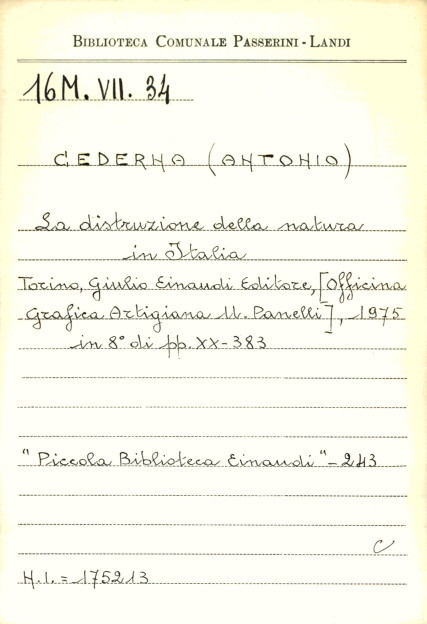 BIBLIOTECA COMUNALE PASSERINI - LANDI
16M. VII. 34
CEDERNA (ANTONIO)
La distruzione della natura
in Italia
Torino, Giulio Einaudi Editore, [Officina
Grafica Artigiana U. Panelli], 1975
in 8° di pp. XX-383
"Piccola Biblioteca Einaudi" - 243
C
H.I. = 175213